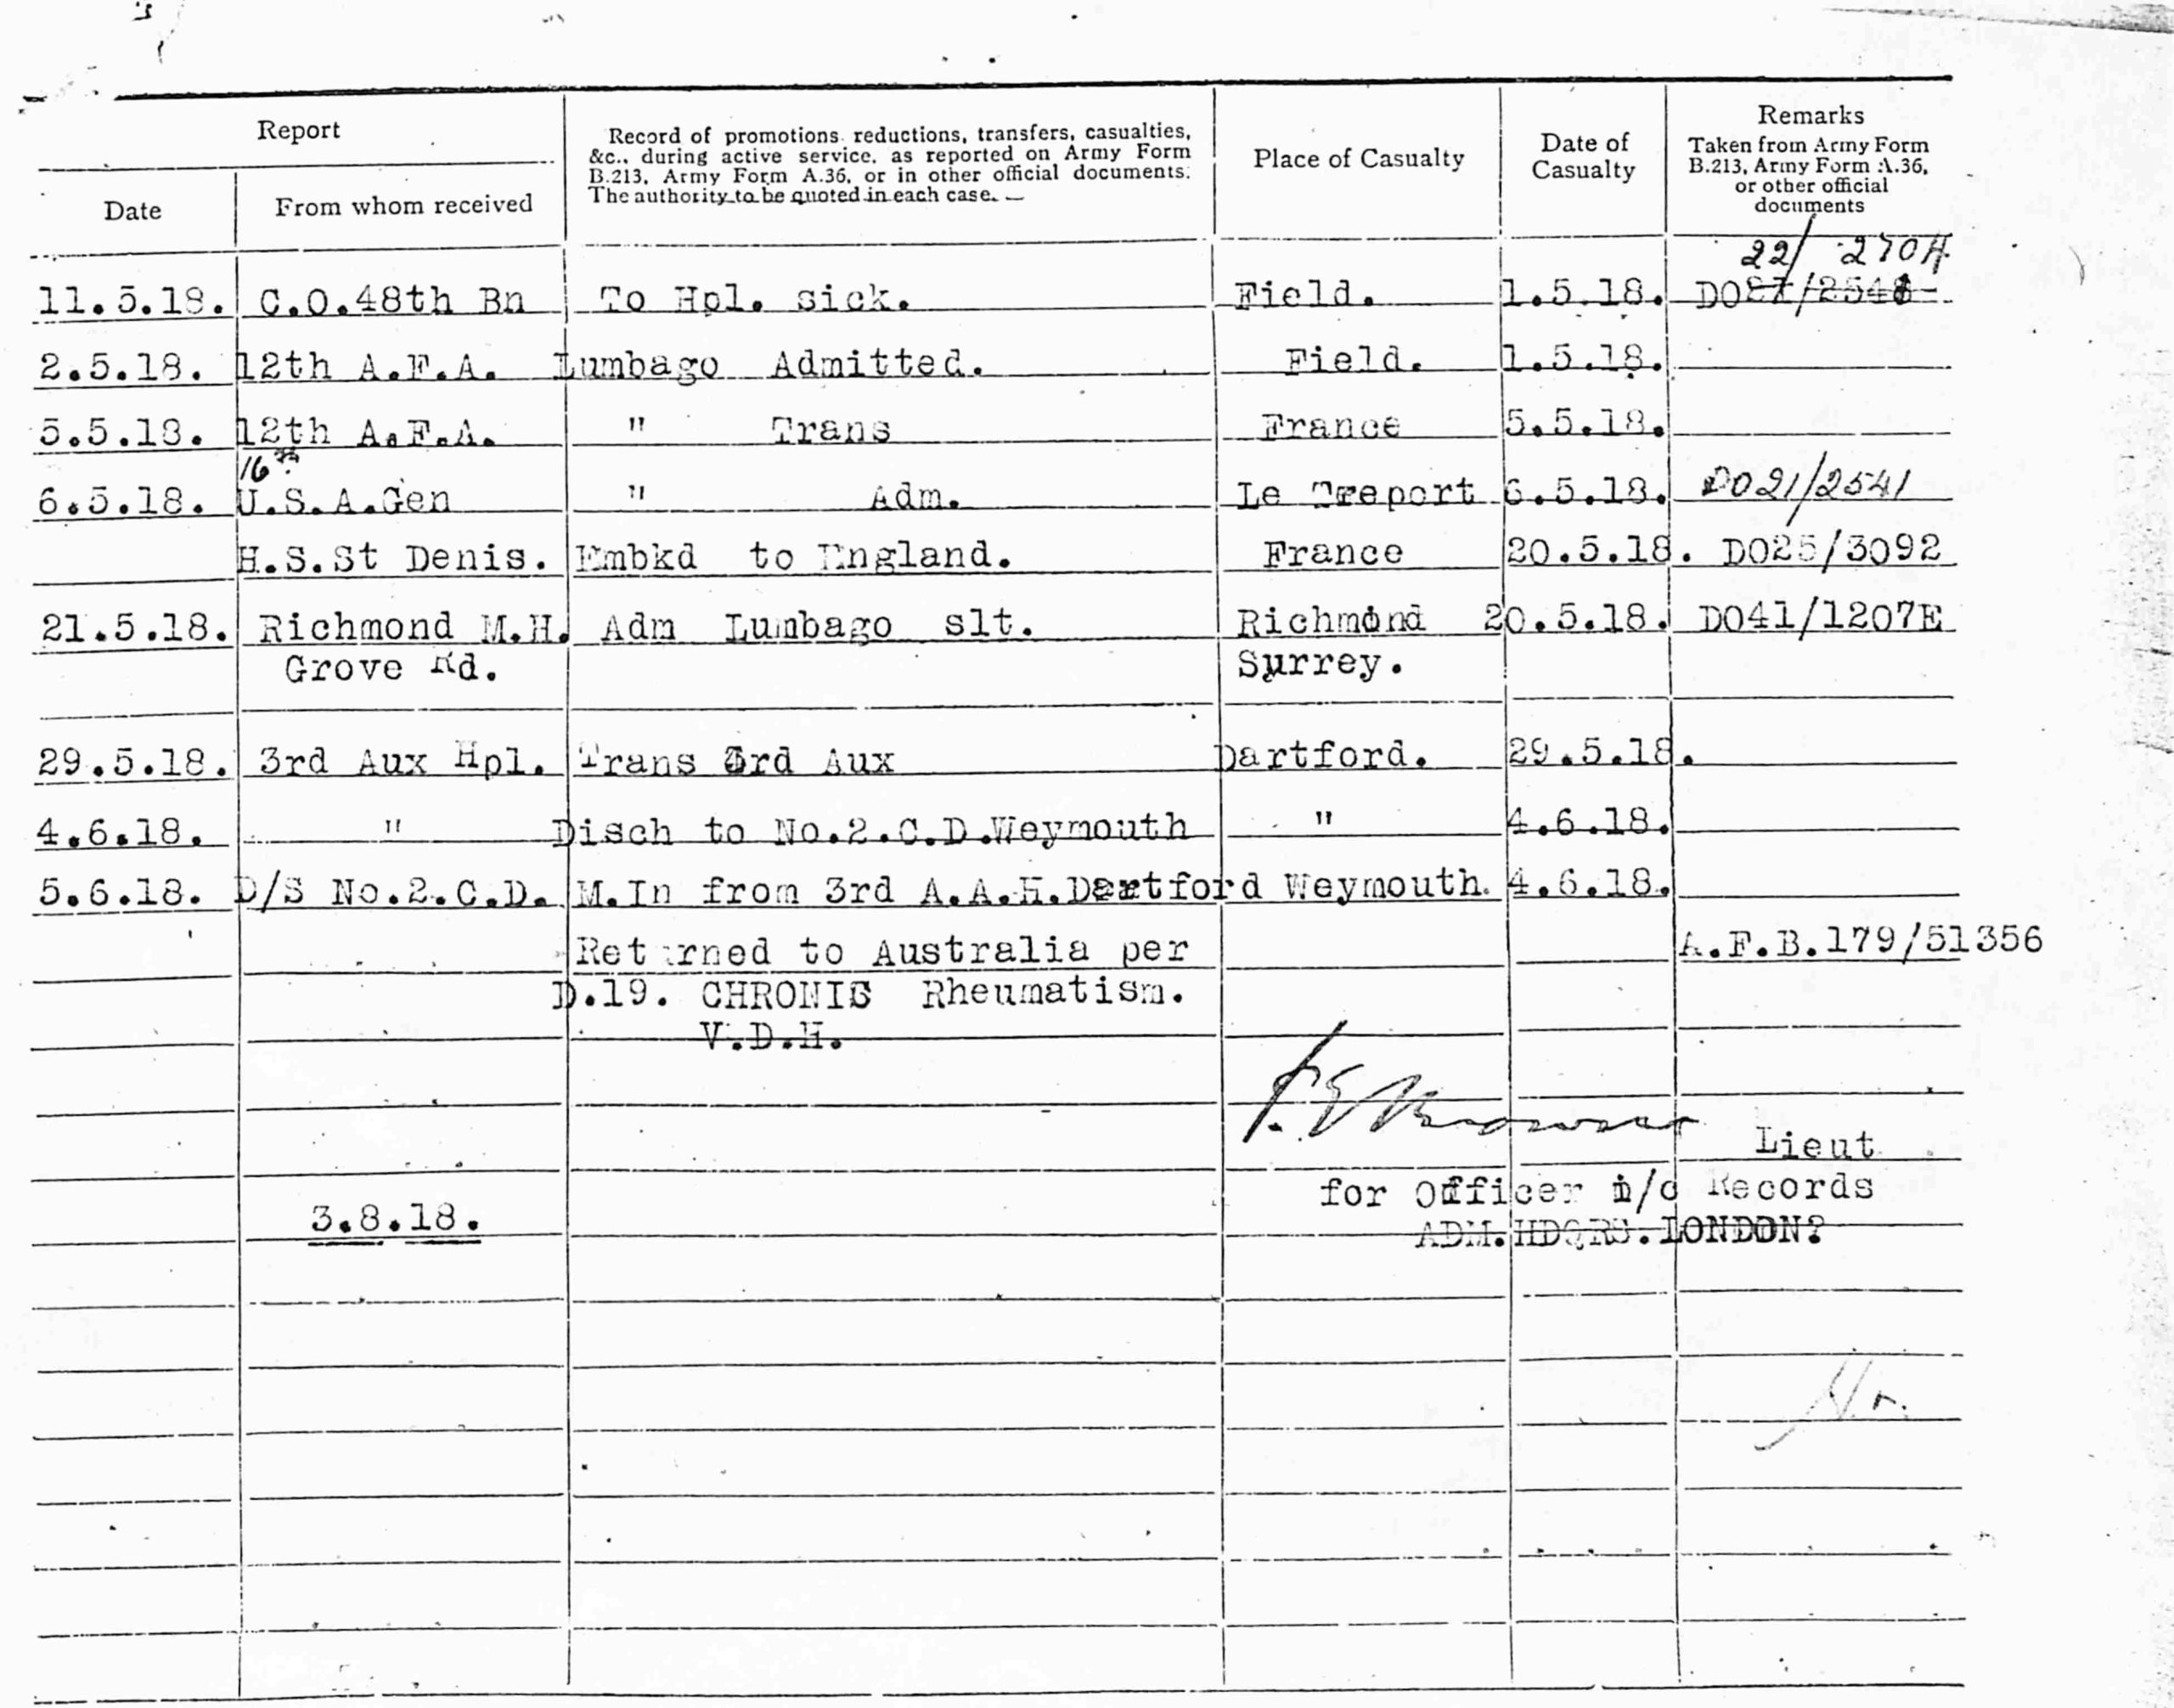 Report
Record of promotions, reductions, transfers, casualties,
&c., during active service, as reported on Army Form
B.213, Army Form A.36, or in other official documents.
The authority to be quoted in each case.
Place of Casualty
Date of
Casualty
Remarks
Taken from Army Form
B.213, Army Form A.36,
or other official
documents
Date
From whom received
22/ 270H
11.5.18. C.O.48th Bn To Hpl. sick. Field. 1.5.18. DO21/2541
2.5.18. 12th A.F.A. Lumbago Admitted. Field. 1.5.18.
5.5.18. 12th A.F.A. " Trans France 5.5.18.
16th
6.5.18. U.S.A.Gen " Adm. Le Treport 6.5.18. DO21/2541
H.S.St Denis. Embkd to England. France 20.5.18. DO25/3092
21.5.18. Richmond M.H. Adm Lumbago slt. Richmond 20.5.18. DO41/1207E
Grove Rd. Surrey.
29.5.18. 3rd Aux Hpl. Trans 3rd Aux Dartford. 29.5.18.
4.6.18. " Disch to No.2.C.D.Weymouth " 4.6.18.
5.6.18. D/S No.2.C.D. M.In from 3rd A.A.H.Dartford Weymouth. 4.6.18.
Returned to Australia per A.F.B.179/51356
D.19. CHRONIC Rheumatism.
V.D.H.
Lieut
for Officer i/c Records
3.8.18.
ADM.HDQRS.LONDON?